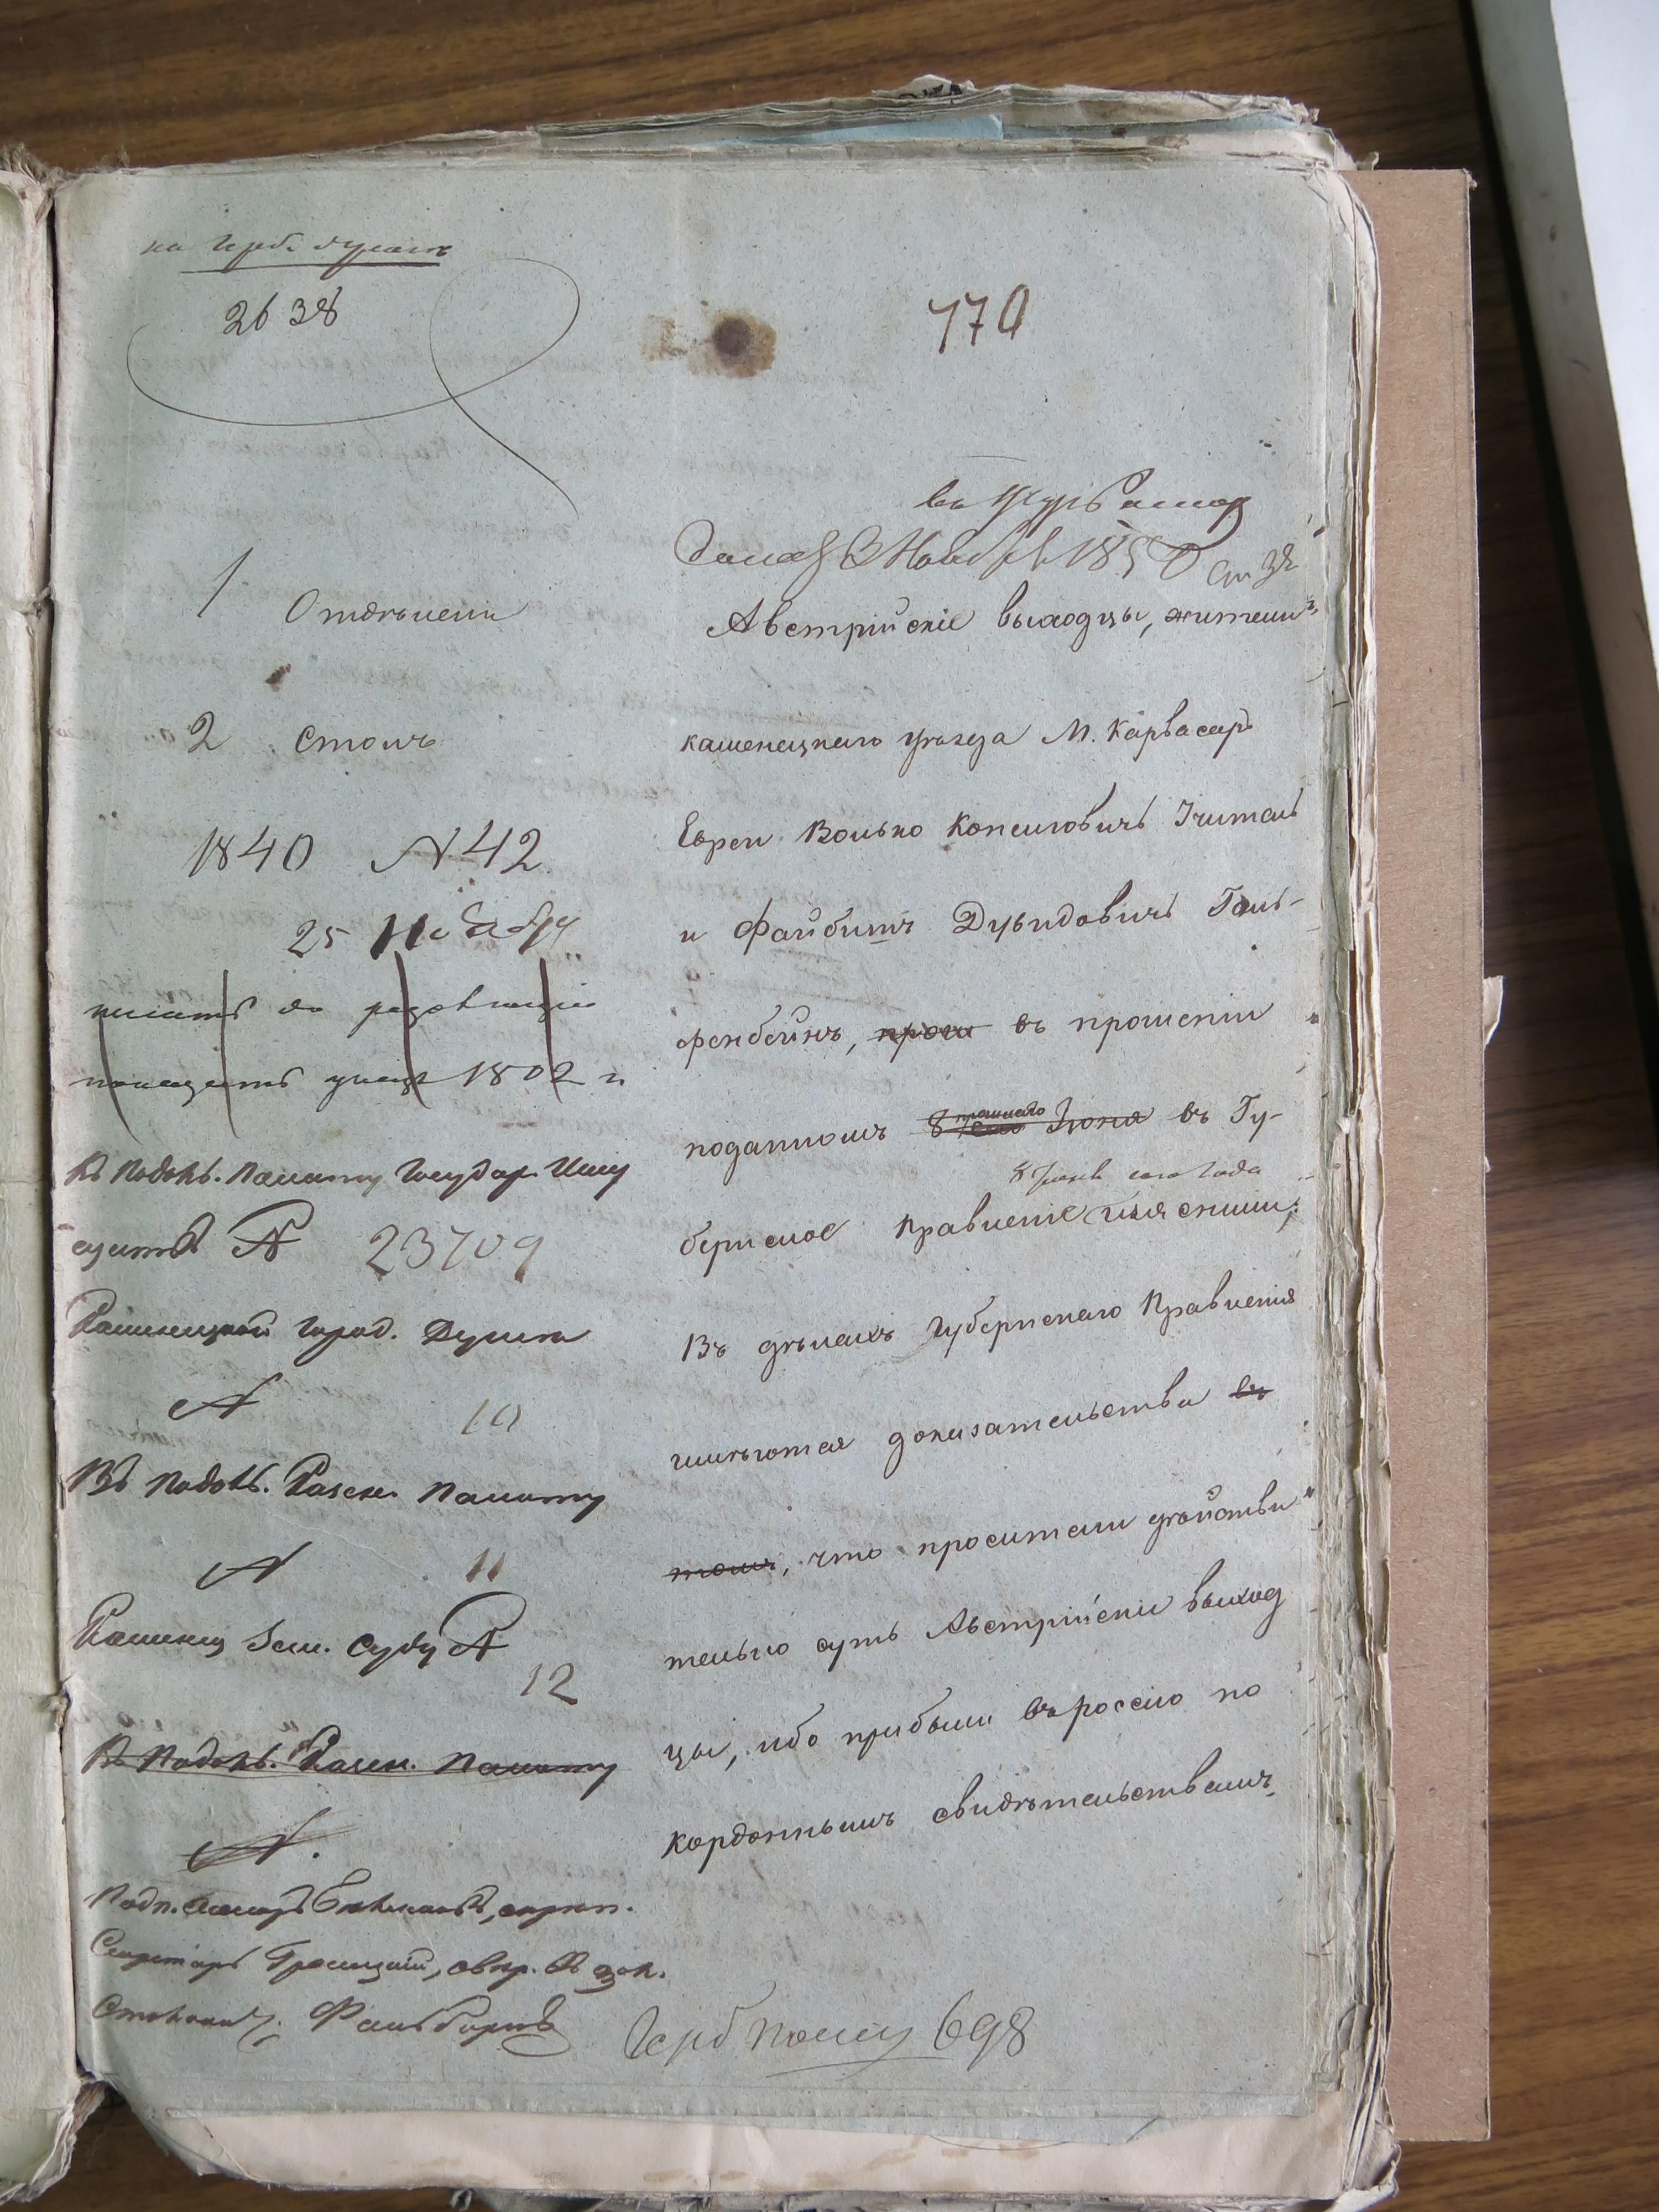 на Герб. бумагѣ
2638
770
въ Журналъ
3 Ноября 1850
1 Отдѣленіе
2 Столъ
1840 N 42
25 Ноября
1802 г.
Въ Подольс. Палату Государ. Иму
ществъ N 23709
Каменецкой Город. Думѣ
N 10
Въ Подольс. Казен. Палату
N 11
Каменец. Зем. Суду N
12
Въ Подольс. Казен. Палату
N.
Секретарь
Столонач.
Австрійскіе выходцы, жители
каменецкаго уѣзда М. Карвасаръ
Евреи Волько Копелговичъ Учитель
и Файбишъ Дувидовичъ Гель-
фенбейнъ, прош въ прошеніи
поданномъ 8 Іюня въ Гу-
8 Іюня сего года
бернское Правленіе
Въ дѣлахъ Губернскаго Правленія
имѣются доказательства въ
томъ, что просители дѣйстви
тельно суть Австрійскіе выход
цы, ибо прибыли въ россію по
кордоннымъ свидѣтельствамъ,
Герб пошл 698